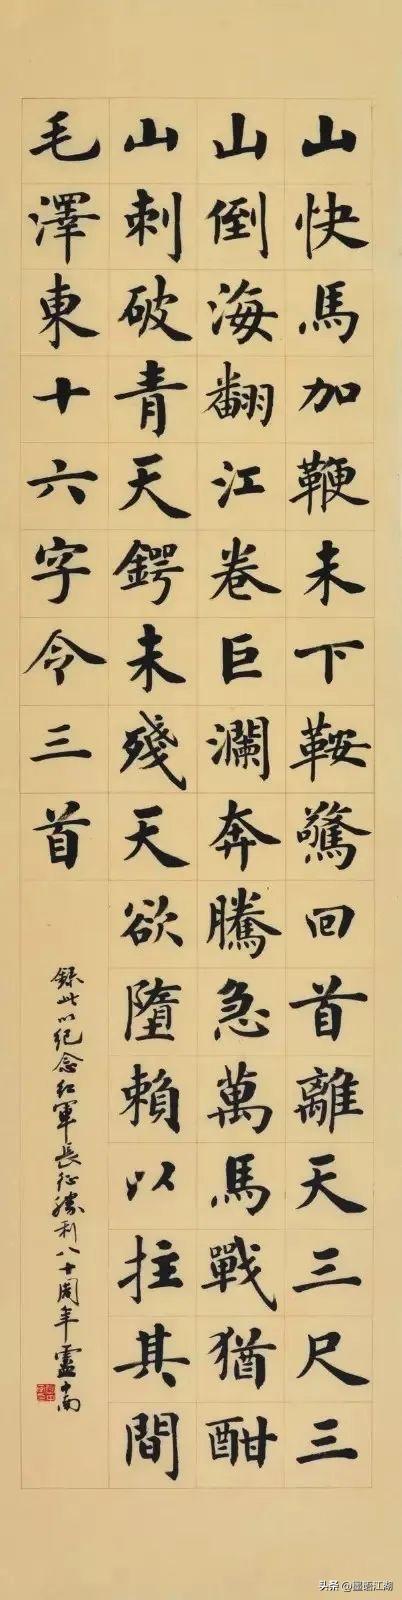 山快馬加鞭未下鞍驚回首離天三尺三
山倒海翻江卷巨瀾奔騰急萬馬戰猶酣
山刺破青天鍔未殘天欲墮賴以拄其間
毛澤東十六字令三首
錄此以紀念紅軍長征勝利八十周年盧中南
头条@墨语江湖